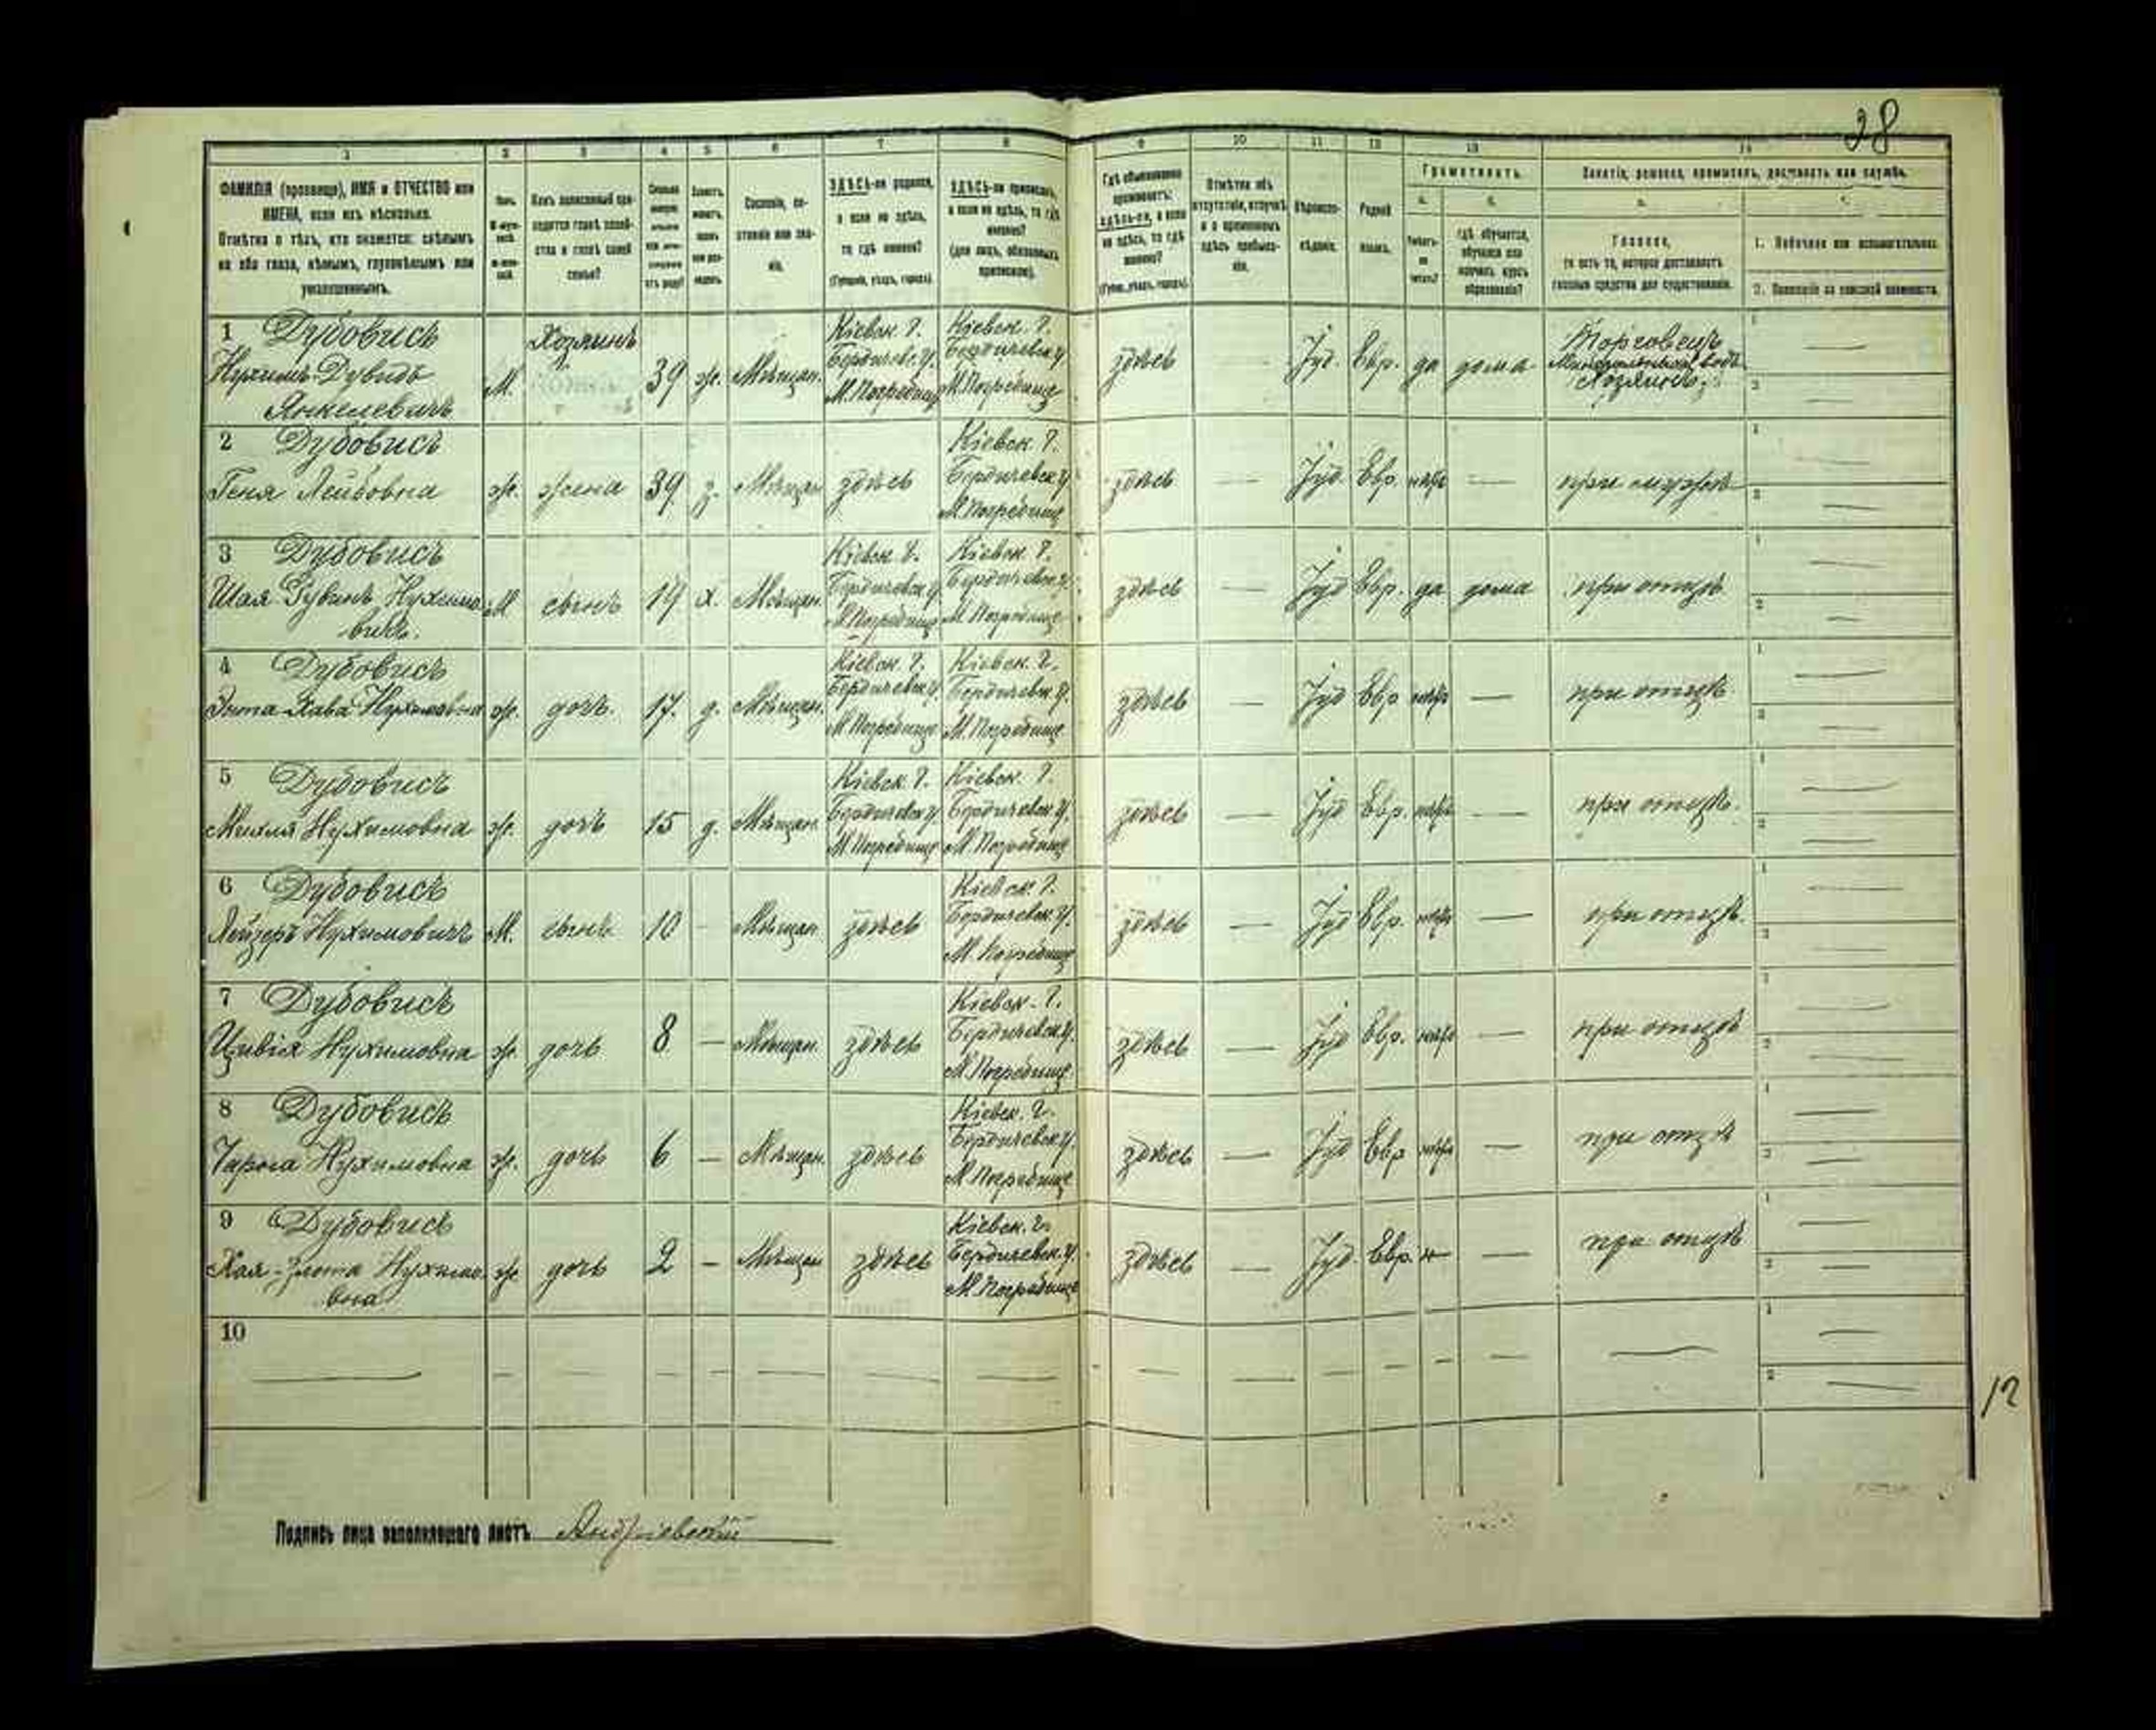 38
1 2 3 4 5 6 7 8 9 10 11 12 13 14
ФАМИЛІЯ (прозвище), ИМЯ и ОТЧЕСТВО или
ИМЕНА, если ихъ нѣсколько.
Отмѣтка о тѣхъ, кто окажется: слѣпымъ
на оба глаза, нѣмымъ, глухонѣмымъ или
умалишеннымъ.
Какъ записанный при-
ходится главѣ хозяй-
ства и главѣ своей
семьи?
Сословіе, со-
стояніе или зва-
ніе.
ЗДѢСЬ-ли родился,
а если не здѣсь,
то гдѣ именно?
(Губернія, уѣздъ, городъ).
ЗДѢСЬ-ли приписанъ,
а если не здѣсь, то гдѣ
именно?
(для лицъ, обязанныхъ
припискою).
Гдѣ обыкновенно
проживаетъ:
здѣсь-ли, а если
не здѣсь, то гдѣ
именно?
(Губер., уѣздъ, городъ).
Отмѣтка объ
отсутствіи, отлучкѣ
и о временномъ
здѣсь пребыва-
ніи.
Вѣроиспо-
вѣданіе.
Родной
языкъ.
Грамотность.
а.
Умѣетъ-
ли
читать?
б.
Гдѣ обучается,
обучался или
кончилъ курсъ
образованія?
Занятіе, ремесло, промыселъ, должность или служба.
Главное,
то есть то, которое доставляетъ
главныя средства для существованія.
1. Побочное или вспомогательное.
2. Положеніе по воинской повинности.
1 Дубовисъ
Нухимъ-Дувидъ
Янкелевичъ
М. Хозяинъ 39 ж. Мѣщан.
Кіевск. г.
Бердичевс. у.
М. Погребище
Кіевск. г.
Бердичевск. у.
М. Погребище
здѣсь — Іуд. Евр. да дома
Торговецъ
Минеральныхъ водъ
Хозяинъ
2 Дубовисъ
Геня Лейбовна
ж. жена 39 з. Мѣщан. здѣсь
Кіевск. г.
Бердичевск. у.
М. Погребище
здѣсь — Іуд. Евр. —
при мужѣ
3 Дубовисъ
Шая-Рувинъ Нухимо
вичъ.
М. сынъ 19 х. Мѣщан.
Кіевск. г.
Бердичевск. у.
М. Погребище
Кіевск. г.
Бердичевск. у.
М. Погребище
здѣсь — Іуд Евр. да дома при отцѣ
4 Дубовисъ
Хава Нухимовна
ж. дочь. 17. д. Мѣщан.
Кіевск. г.
Бердичевск. у.
М. Погребище
Кіевск. г.
Бердичевск. у.
М. Погребище
здѣсь — Іуд Евр — при отцѣ
5 Дубовисъ
Нухимовна
ж. дочь 15 д. Мѣщан.
Кіевск. г.
Бердичевск. у.
М. Погребище
Кіевск. г.
Бердичевск. у.
М. Погребище
здѣсь — Іуд Евр. — при отцѣ.
6 Дубовисъ
Лейзеръ Нухимовичъ
М. сынъ 10 - Мѣщан. здѣсь
Кіевск. г.
Бердичевск. у.
М. Погребище
здѣсь — Іуд Евр. — при отцѣ.
7 Дубовисъ
Цивія Нухимовна
ж. дочь 8 — Мѣщан. здѣсь
Кіевск. г.
Бердичевск. у.
М. Погребище
здѣсь — Іуд Евр. — при отцѣ
8 Дубовисъ
Нухимовна
ж. дочь 6 — Мѣщан. здѣсь
Кіевск. г.
Бердичевск. у.
М. Погребище
здѣсь — Іуд Евр — при отцѣ
9 Дубовисъ
Хая-Злота Нухимо
вна
ж дочь 2 — Мѣщан здѣсь
Кіевск. г.
Бердичевск. у.
М. Погребище
здѣсь — Іуд. Евр. н — при отцѣ
10
12
Подпись лица заполнявшаго листъ Андріевскій